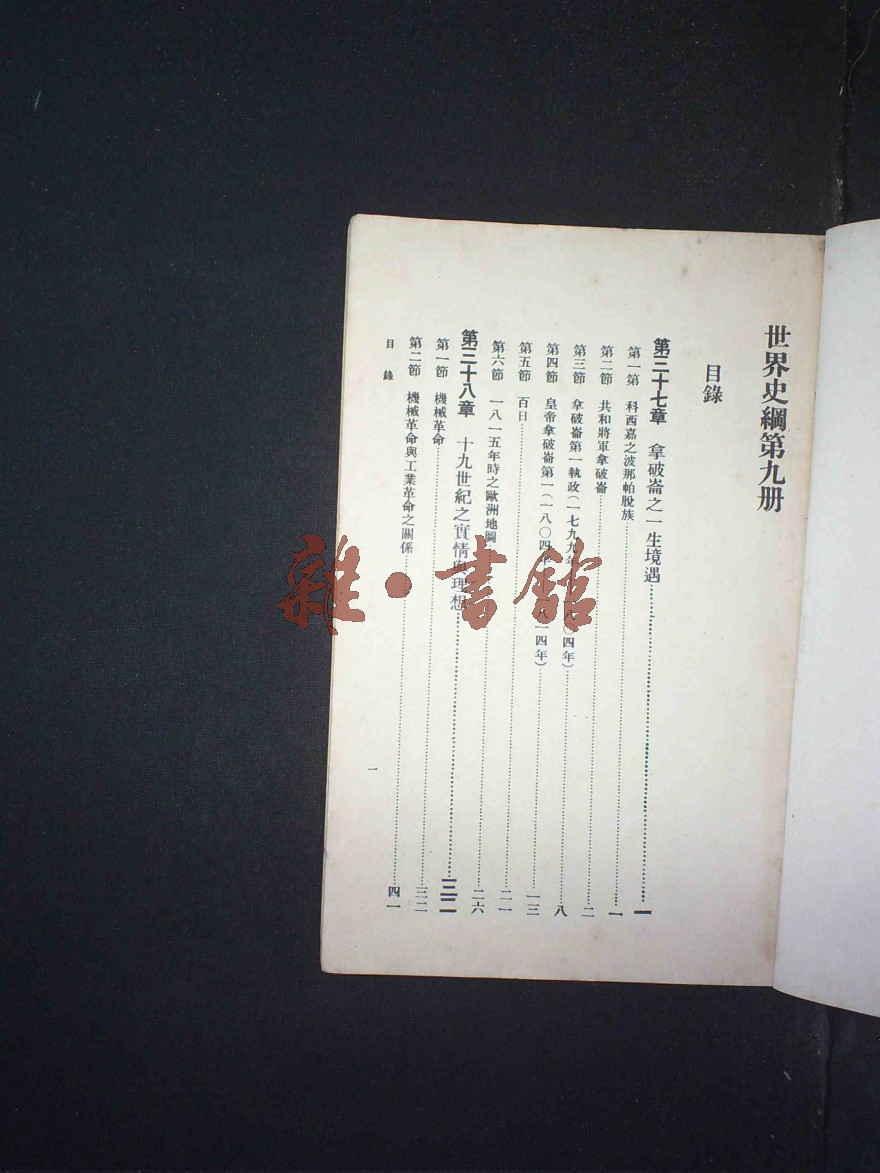 世界史綱第九册
目錄
第三十七章 拿破崙之一生境遇……一
第一第 科西嘉之波那帕脫族……一
第二節 共和將軍拿破崙……二
第三節 拿破崙第一執政(一七九九年 八〇四年)……八
第四節 皇帝拿破崙第一(一八〇四年 八一四年)……一三
第五節 百日……二一
第六節 一八一五年時之歐洲地圖……二六
第三十八章 十九世紀之實情與理想……三二
第一節 機械革命……三二
第二節 機械革命與工業革命之關係……四一
目錄
一
雜·書館